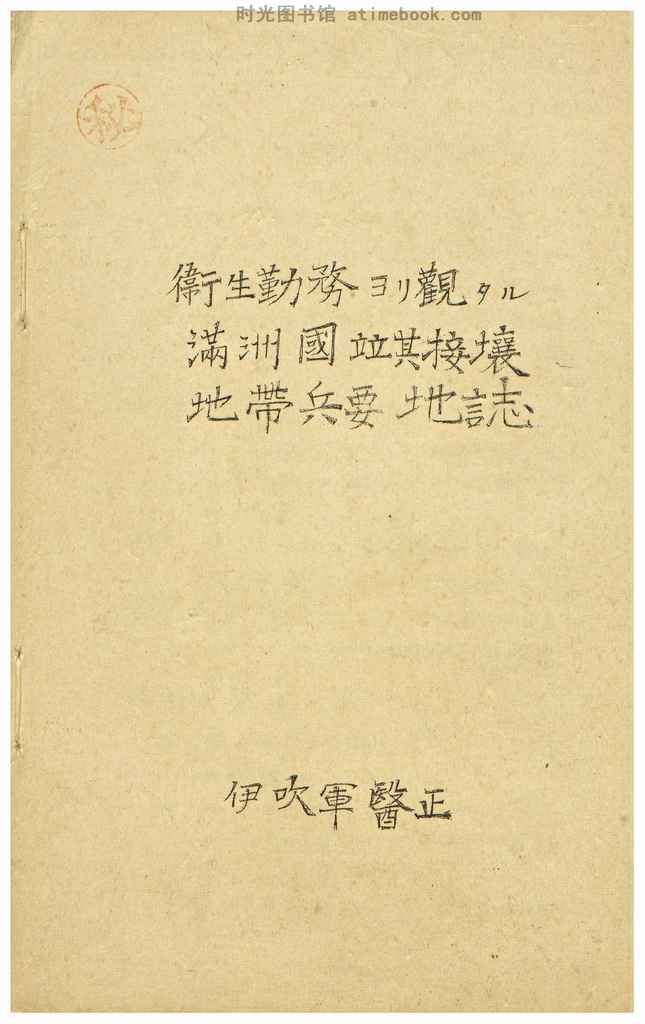 时光图书馆 atimebook.com
秘
衞生勤務ヨリ觀タル
滿洲國竝其接壤
地帶兵要地誌
伊吹軍醫正